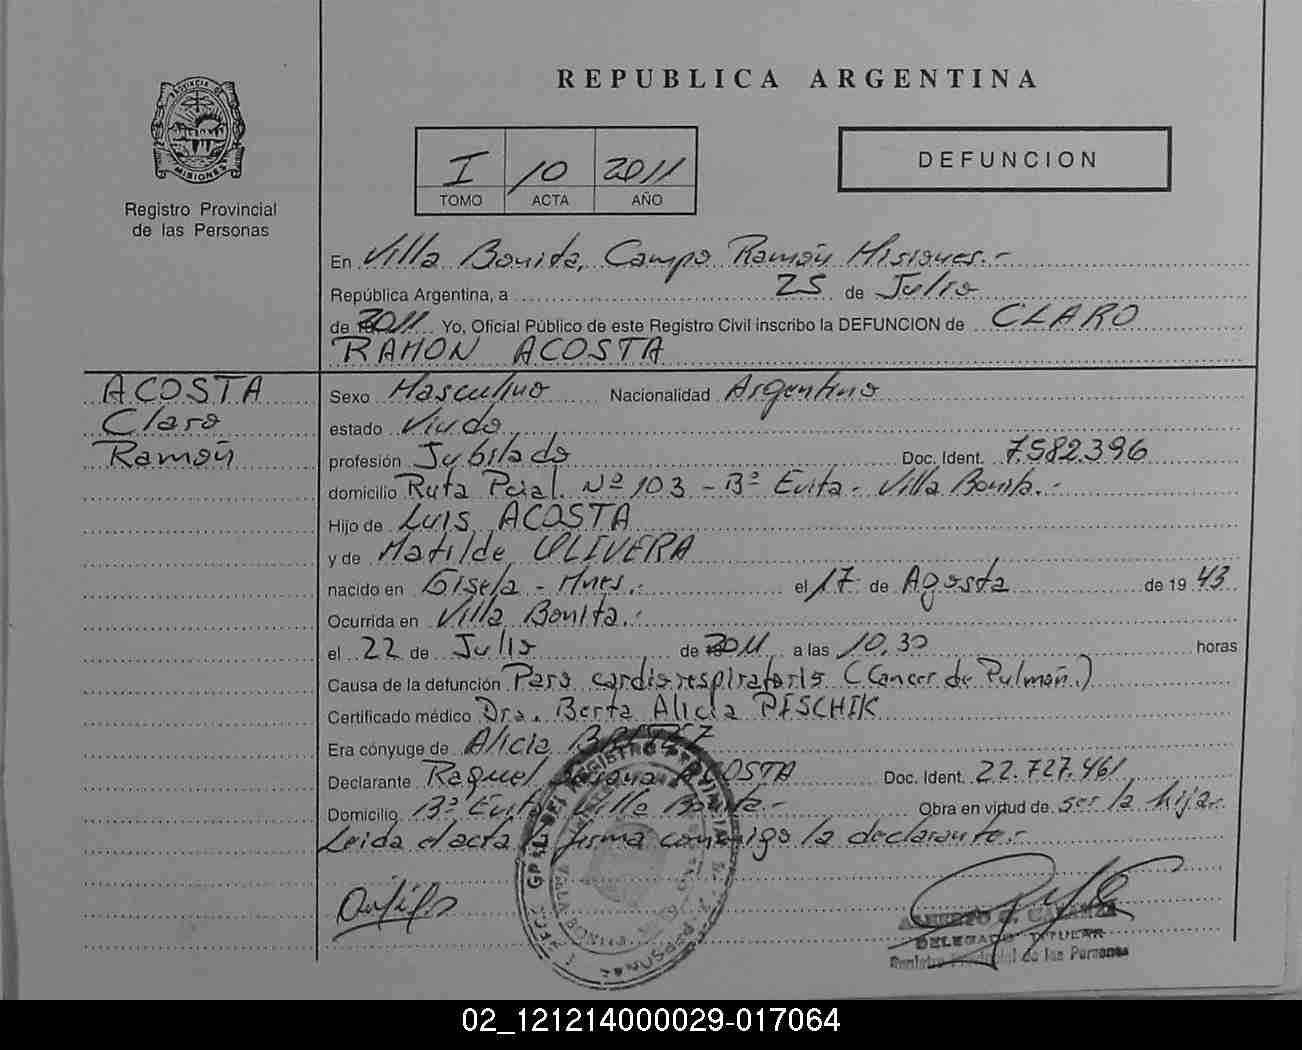 REPUBLICA ARGENTINA
PROVINCIA D
MISIONES
Registro Provincial
de las Personas
I 10 2011
TOMO ACTA AÑO
DEFUNCION
En Villa Bonita, Campo Ramón Misiones.-
República Argentina, a 25 de Julio
de 2011 Yo, Oficial Público de este Registro Civil inscribo la DEFUNCION de CLARO
RAMON ACOSTA
ACOSTA
Claro
Ramón
Sexo Masculino Nacionalidad Argentino
estado Viudo
profesión Jubilado Doc. Ident. 7.582.396
domicilio Ruta Pcial. Nº 103 - Bº Evita - Villa Bonita.-
Hijo de Luis ACOSTA
y de Matilde OLIVERA
nacido en Gisela - Mnes.- el 17 de Agosto de 1943
Ocurrida en Villa Bonita.-
el 22 de Julio de 2011 a las 10,30 horas
Causa de la defunción Paro cardiorespiratorio (Cancer de Pulmón.)
Certificado médico Dra. Berta Alicia PESCHIK
Era cónyuge de Alicia
Declarante Raquel ACOSTA Doc. Ident. 22.727.461
Domicilio Bº Evita Villa Bonita.- Obra en virtud de ser la hija.
Leida el acta la firma conmigo la declarante.-
REGISTRO PROVINCIAL
VILLA BONITA
PERSONAS
ALBERTO
DELEGADO TITULAR
Registro Provincial de las Personas
02_121214000029-017064